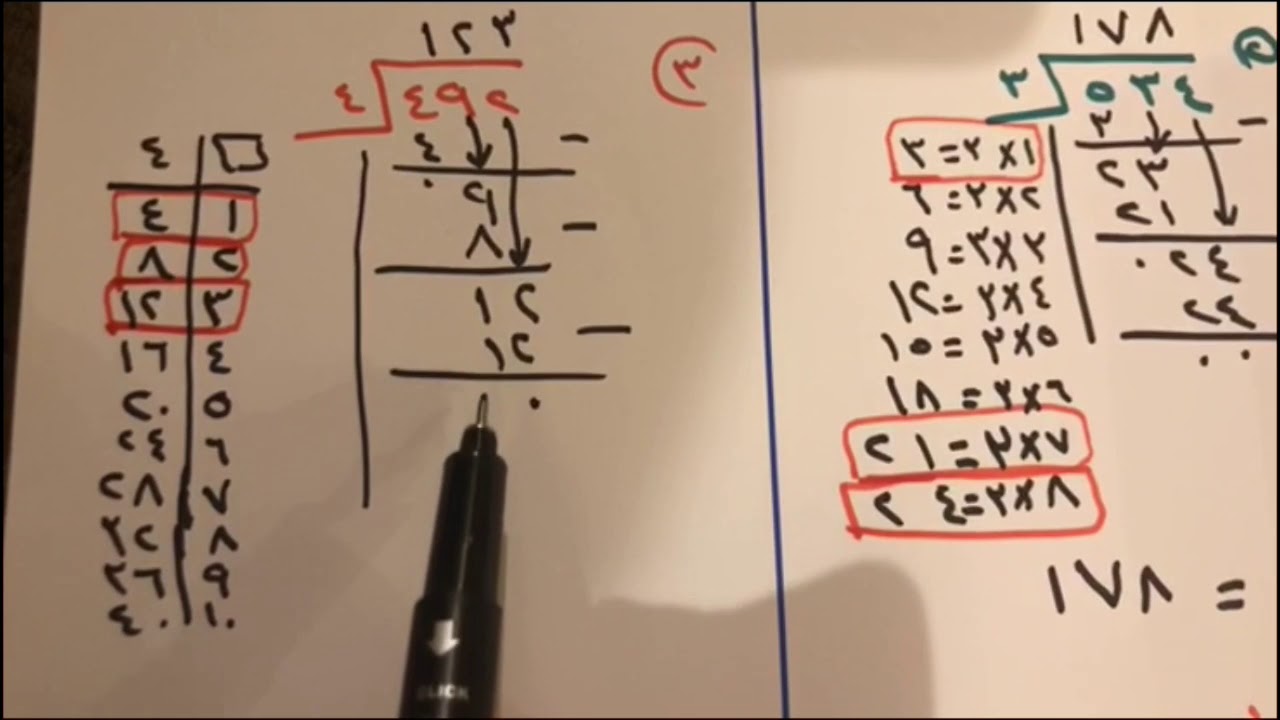 ١٢٣
٤ ٤٩٢
٤
٠٩
٨
١٢
١٢
٠
٣
٤ □
٤ ١
٨ ٢
١٢ ٣
١٦ ٤
٢٠ ٥
٢٤ ٦
٢٨ ٧
٣٢ ٨
٣٦ ٩
٤٠ ١٠
CLICK
١٧٨
٣ ٥٣٤
٣
٢٣
٢١
٠٢٤
٢٤
٠٠
٢
٣=٣×١
٦=٣×٢
٩=٣×٣
١٢=٣×٤
١٥=٣×٥
١٨=٣×٦
٢١=٣×٧
٢٤=٣×٨
١٧٨ =